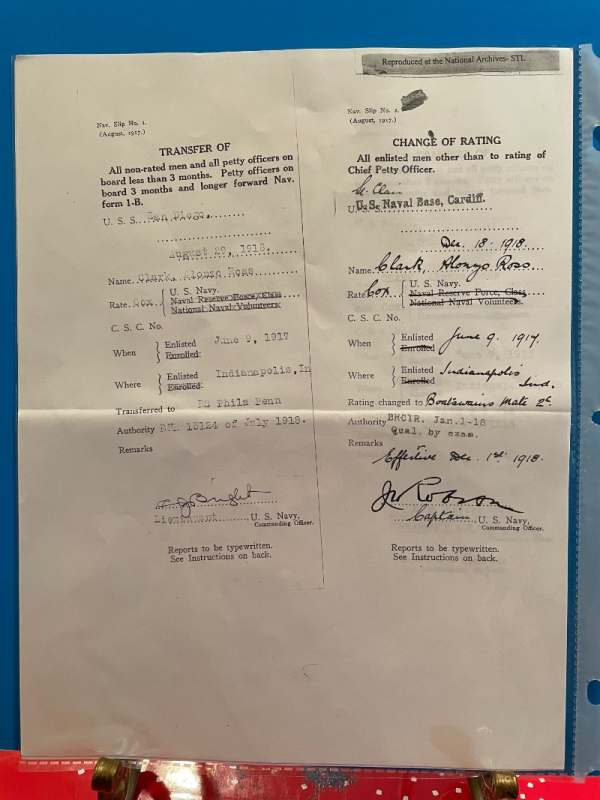 Reproduced at the National Archives- STL
Nav. Slip No. 1.
(August, 1917.)
TRANSFER OF
All non-rated men and all petty officers on
board less than 3 months. Petty officers on
board 3 months and longer forward Nav.
form 1-B.
U. S. S. San Diego,
August 29, 1918.
Name Clark, Alonzo Ross
Rate Cox { U. S. Navy.
Naval Reserve Force, Class
National Naval Volunteers.
C. S. C. No.
When } Enlisted June 9, 1917
Enrolled:
Where } Enlisted Indianapolis, In
Enrolled:
Transferred to RS Phila Penn
Authority 15124 of July 1918.
Remarks
Bright
Lieutenant U. S. Navy,
Commanding Officer.
Reports to be typewritten.
See Instructions on back.
Nav. Slip No.
(August, 1917.)
CHANGE OF RATING
All enlisted men other than to rating of
Chief Petty Officer.
U.S. Naval Base, Cardiff.
Dec. 18. 1918.
Name Clark, Alonzo Ross
Rate Cox { U. S. Navy.
Naval Reserve Force, Class
National Naval Volunteers.
C. S. C. No.
When } Enlisted June 9. 1917.
Enrolled
Where } Enlisted Indianapolis
Enrolled Ind.
Rating changed to Boatswains Mate 2c.
Authority Jan.1-18
Qual. by exam.
Remarks
Effective Dec. 1st 1918.
Robson
Captain U. S. Navy,
Commanding Officer.
Reports to be typewritten.
See Instructions on back.